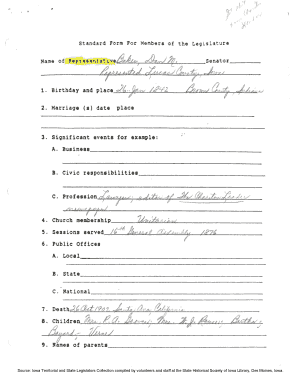 Standard Form For Members of the Legislature
Name of Representative Baker, Dan M. Senator
Represented Lucas County, Iowa
1. Birthday and place 1842 County
2. Marriage (s) date place
3. Significant events for example:
A. Business
B. Civic responsibilities
C. Profession Lawyer, editor of The Chariton Leader
newspaper
4. Church membership Unitarian
5. Sessions served 16th General Assembly 1876
6. Public Offices
A. Local
B. State
C. National
7. Death 26 Oct 1902 Santa Ana, California
8. Children Mrs. Mrs.
9. Names of parents
Source: Iowa Territorial and State Legislators Collection compiled by volunteers and staff at the State Historical Society of Iowa Library, Des Moines, Iowa.